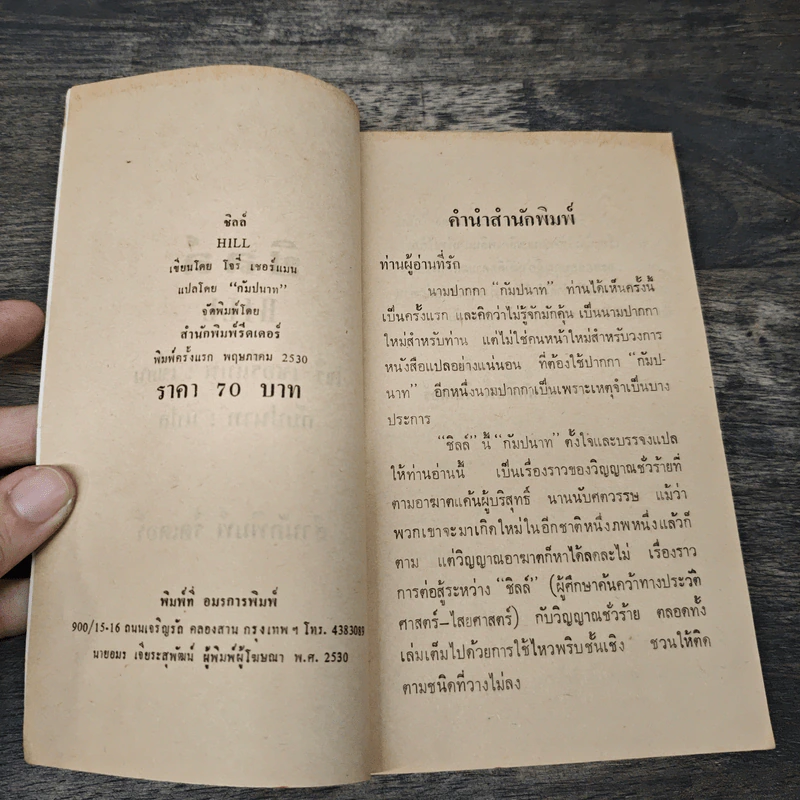 ชิลล์
HILL
เขียนโดย โจรี่ เชอร์แมน
แปลโดย "กัมปนาท"
จัดพิมพ์โดย
สำนักพิมพ์รีดเดอร์
พิมพ์ครั้งแรก พฤษภาคม 2530
ราคา 70 บาท
พิมพ์ที่ อมรการพิมพ์
900/15-16 ถนนเจริญรัถ คลองสาน กรุงเทพฯ โทร. 4383089
นายอมร เจียระสุพัฒน์ ผู้พิมพ์ผู้โฆษณา พ.ศ. 2530
คำนำสำนักพิมพ์
ท่านผู้อ่านที่รัก
นามปากกา "กัมปนาท" ท่านได้เห็นครั้งนี้
เป็นครั้งแรก และคิดว่าไม่รู้จักมักคุ้น เป็นนามปากกา
ใหม่สำหรับท่าน แต่ไม่ใช่คนหน้าใหม่สำหรับวงการ
หนังสือแปลอย่างแน่นอน ที่ต้องใช้ปากกา "กัมป-
นาท" อีกหนึ่งนามปากกาเป็นเพราะเหตุจำเป็นบาง
ประการ
"ชิลล์" นี้ "กัมปนาท" ตั้งใจและบรรจงแปล
ให้ท่านอ่านนี้ เป็นเรื่องราวของวิญญาณชั่วร้ายที่
ตามอาฆาตแค้นผู้บริสุทธิ์ นานนับศตวรรษ แม้ว่า
พวกเขาจะมาเกิดใหม่ในอีกชาติหนึ่งภพหนึ่งแล้วก็
ตาม แต่วิญญาณอาฆาตก็หาได้ลดละไม่ เรื่องราว
การต่อสู้ระหว่าง "ชิลล์" (ผู้ศึกษาค้นคว้าทางประวัติ
ศาสตร์–ไสยศาสตร์) กับวิญญาณชั่วร้าย ตลอดทั้ง
เล่มเต็มไปด้วยการใช้ไหวพริบชั้นเชิง ชวนให้ติด
ตามชนิดที่วางไม่ลง